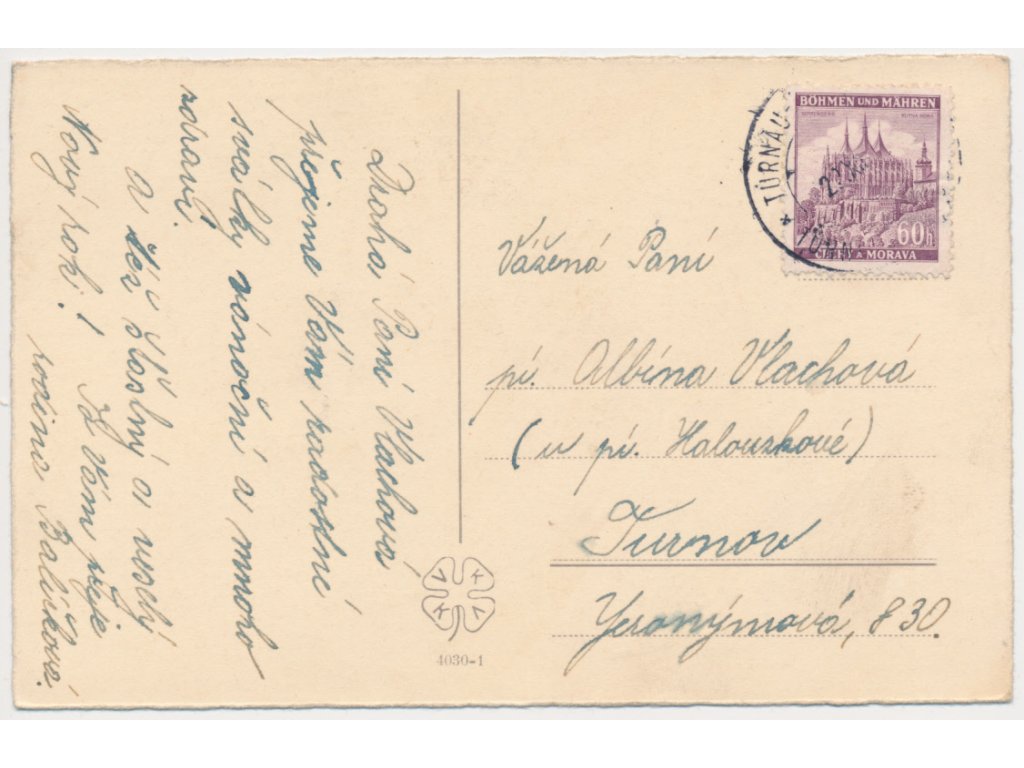 Drahá Paní Vlachová
přejeme Vám radostné
svátky vánoční a mnoho
zdraví.
a též šťastný a veselý
Nový rok!
To Vám přeje
rodina Balíčková.
BÖHMEN UND MÄHREN
60h
ČECHY A MORAVA
TURNAU
Vážená Paní
pí. Albína Vlachová
(u pí. Halouzkové)
Turnov
Jeronýmová, 830.
V K V K
4030-1